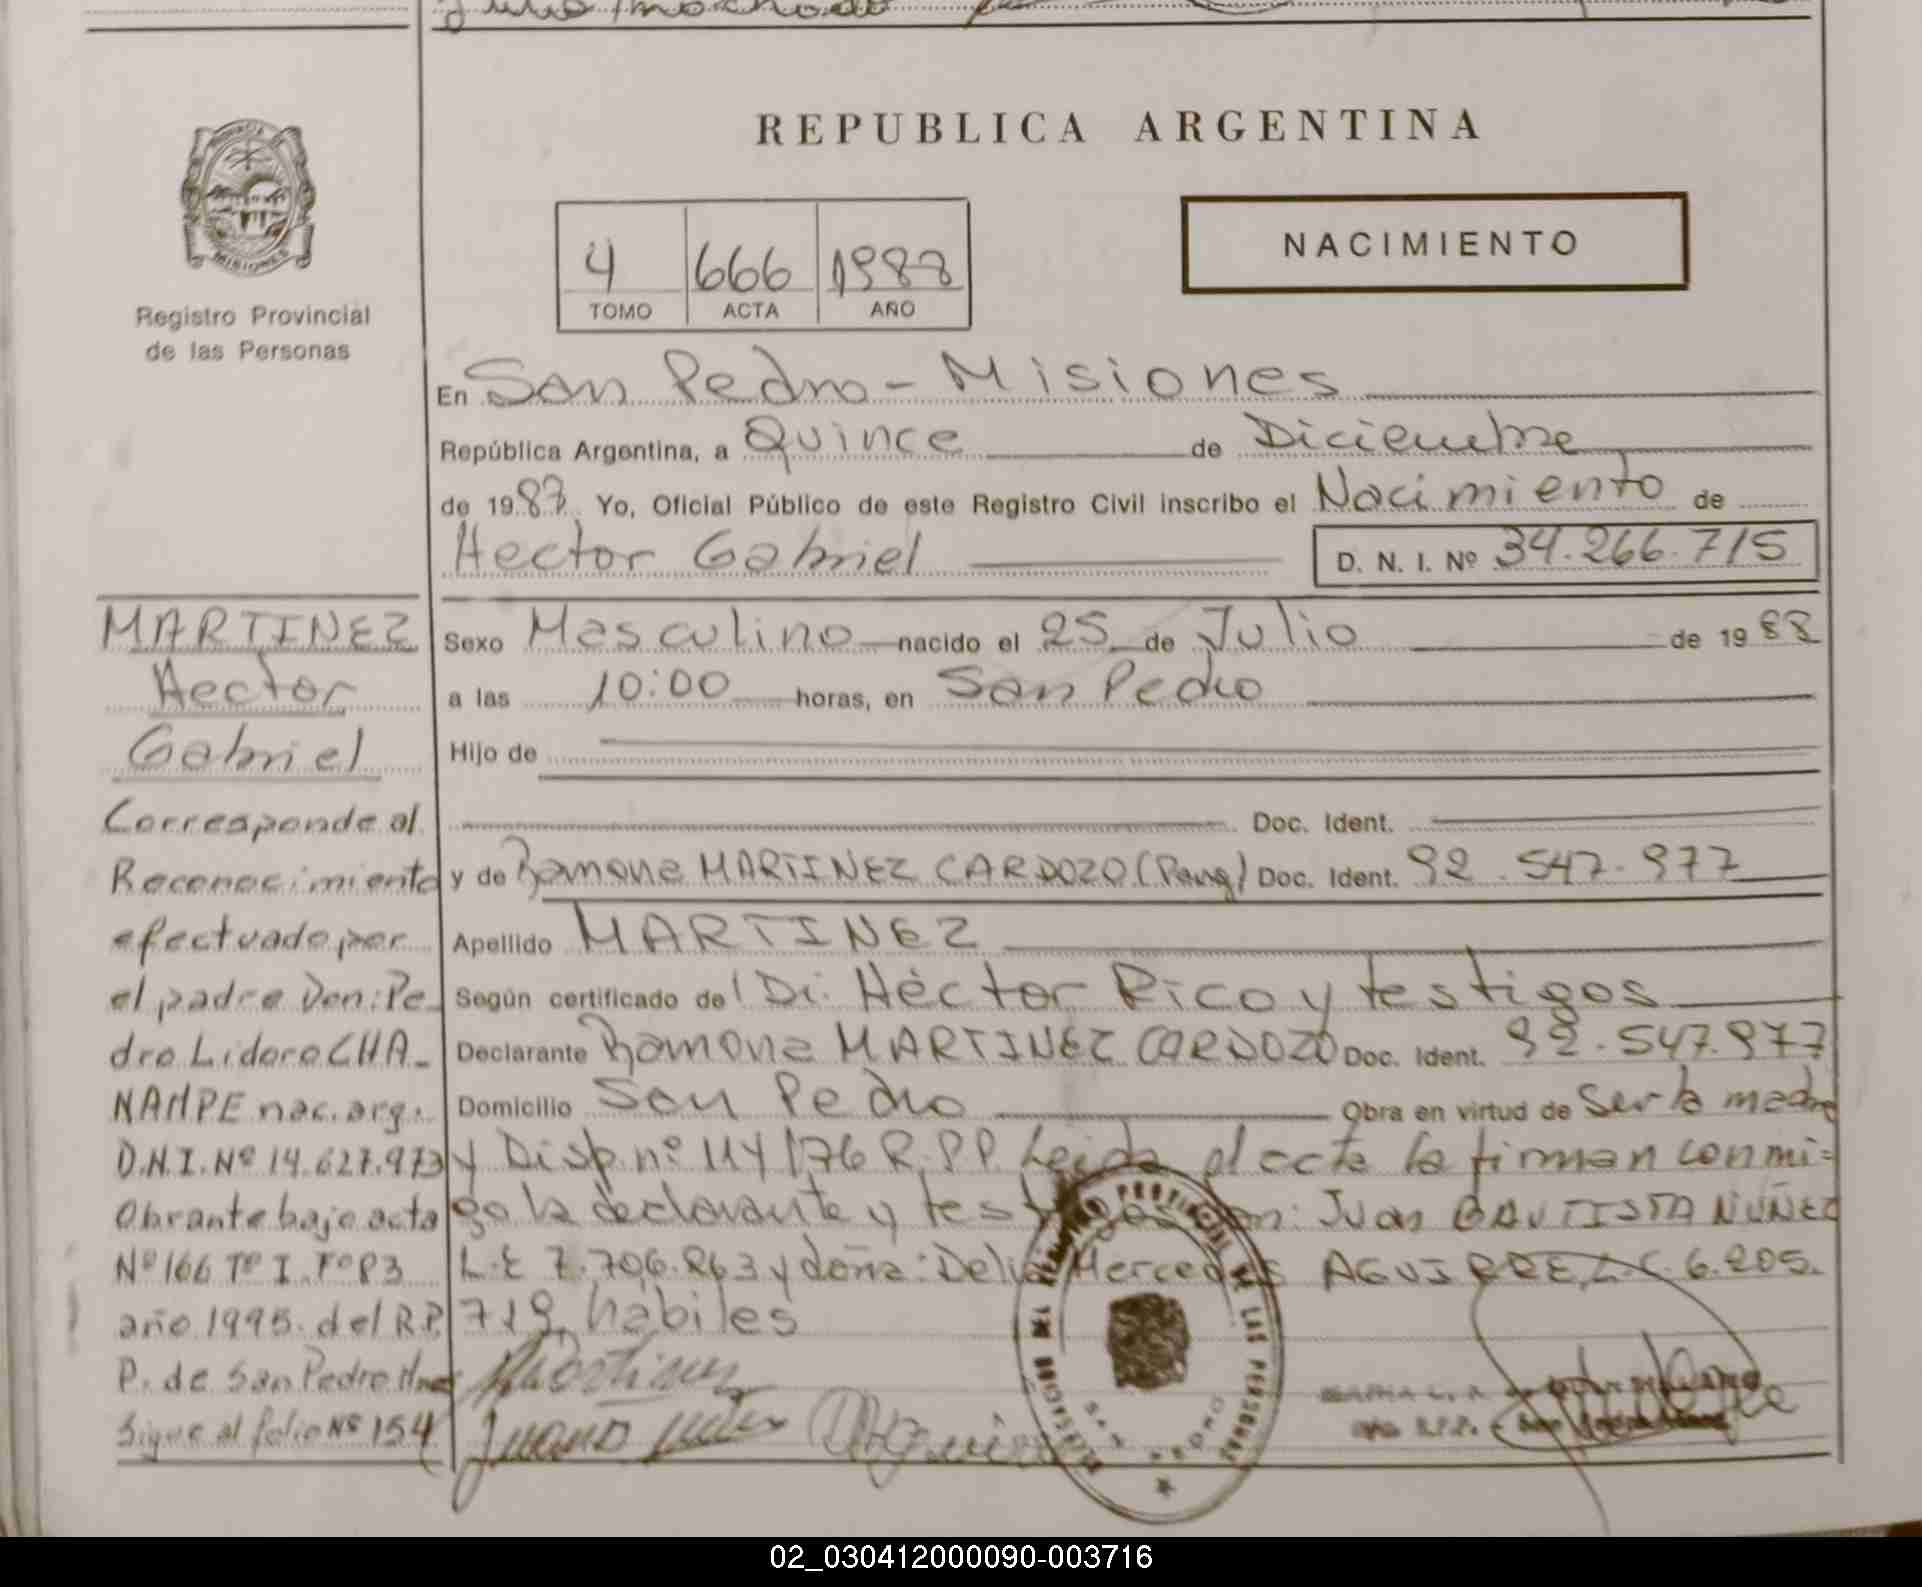 REPUBLICA ARGENTINA
NACIMIENTO
4 666 1988
TOMO ACTA AÑO
MISIONES
Registro Provincial
de las Personas
En San Pedro - Misiones
República Argentina, a Quince de Diciembre
de 1988 Yo, Oficial Público de este Registro Civil inscribo el Nacimiento de
Hector Gabriel D. N. I. Nº 34.266.715
Sexo Masculino nacido el 25 de Julio de 1988
a las 10:00 horas, en San Pedro
Hijo de
Doc. Ident.
y de Ramona MARTINEZ CARDOZO (Parag) Doc. Ident. 92.547.977
Apellido MARTINEZ
Según certificado de Dr. Héctor Rico y testigos
Declarante Ramona MARTINEZ CARDOZO Doc. Ident. 92.547.977
Domicilio San Pedro Obra en virtud de Ser la madre
y Disp. nº 114/76 R.P.P. Leida el acta la firman conmi=
go la declarante y testigos Juan BAUTISTA NUÑEZ
L.E 7.706.863 y doña: Delia Mercedes AGUIRRE L.C. 6.205.
719, habiles
MARTINEZ
Hector
Gabriel
Corresponde al
Reconocimiento
efectuado por
el padre Don: Pe-
dro Lidoro CHA-
NAMPE nac. arg.
D.N.I. Nº 14.627.973
Obrante bajo acta
Nº 166 Tº I. Fº 83
año 1995. del R.P.
P. de San Pedro Mnes
Sigue al folio Nº 154
SAN PEDRO
02_030412000090-003716